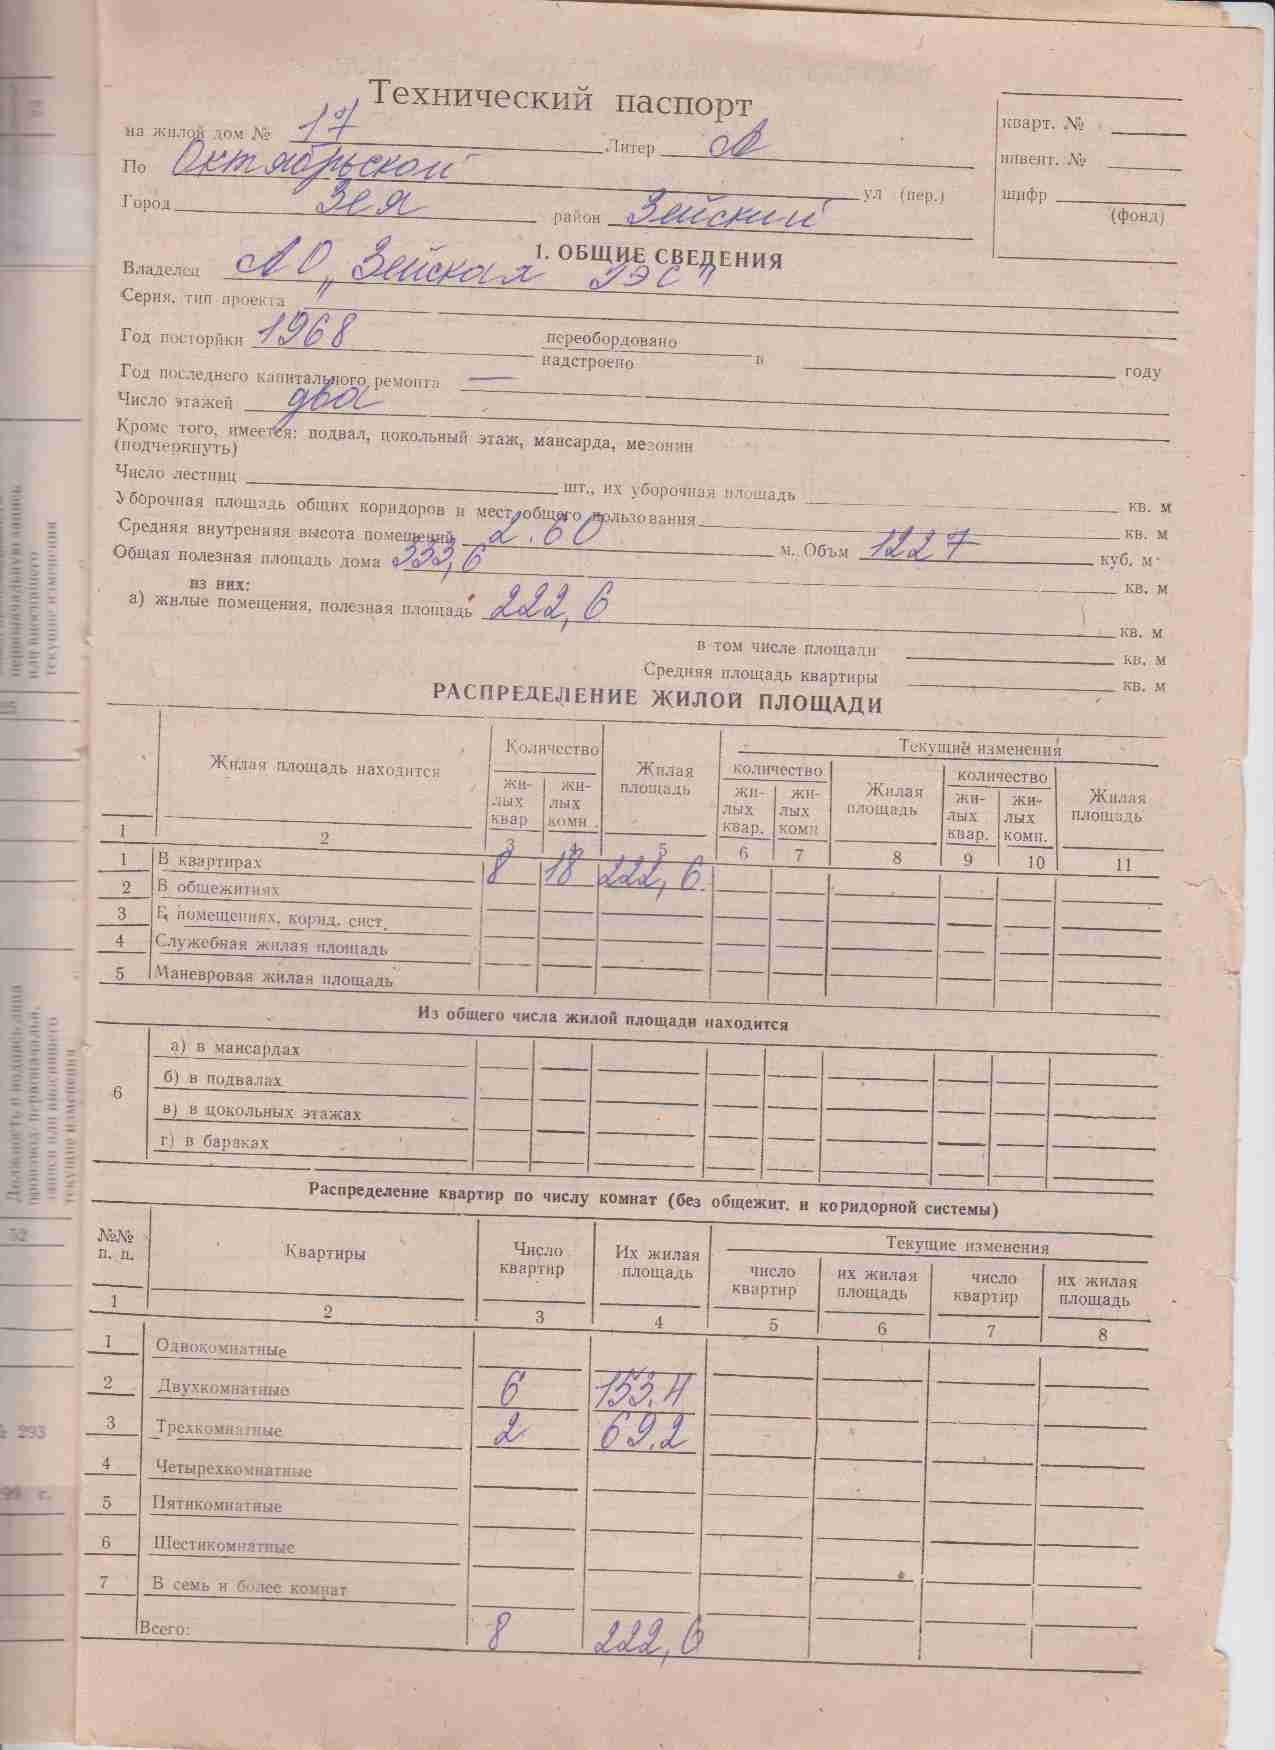 Технический паспорт
на жилой дом № 17 Литер А
По Октябрьской ул (пер.)
Город Зея район Зейский
кварт. №
инвент. №
шифр
(фонд)
1. ОБЩИЕ СВЕДЕНИЯ
Владелец АО „Зейская ГЭС"
Серия, тип проекта
Год посторйки 1968 переобордовано
надстроено в году
Год последнего капитального ремонта —
Число этажей два
Кроме того, имеется: подвал, цокольный этаж, мансарда, мезонин
(подчеркнуть)
Число лестниц шт., их уборочная площадь кв. м
Уборочная площадь общих коридоров и мест общего пользования кв. м
Средняя внутренняя высота помещений 2.60 м. Объм 1227 куб. м
Общая полезная площадь дома 333,6 кв. м
из них:
а) жилые помещения, полезная площадь 222,6 кв. м
в том числе площади кв. м
Средняя площадь квартиры кв. м
РАСПРЕДЕЛЕНИЕ ЖИЛОЙ ПЛОЩАДИ
Жилая площадь находится Количество Жилая площадь Текущие изменения
количество Жилая площадь количество Жилая площадь
жи-лых квар жи-лых комн. жи-лых квар. жи-лых комн жи-лых квар. жи-лых комн.
1 2 3 4 5 6 7 8 9 10 11
1 В квартирах 8 18 222,6.
2 В общежитиях
3 В помещениях, корид. сист.
4 Служебная жилая площадь
5 Маневровая жилая площадь
Из общего числа жилой площади находится
6 а) в мансардах
б) в подвалах
в) в цокольных этажах
г) в бараках
Распределение квартир по числу комнат (без общежит. и коридорной системы)
№№ п. п. Квартиры Число квартир Их жилая площадь Текущие изменения
число квартир их жилая площадь число квартир их жилая площадь
1 2 3 4 5 6 7 8
1 Однокомнатные
2 Двухкомнатные 6 153.4
3 Трехкомнатные 2 69.2
4 Четырехкомнатные
5 Пятикомнатные
6 Шестикомнатные
7 В семь и более комнат
Всего: 8 222,6